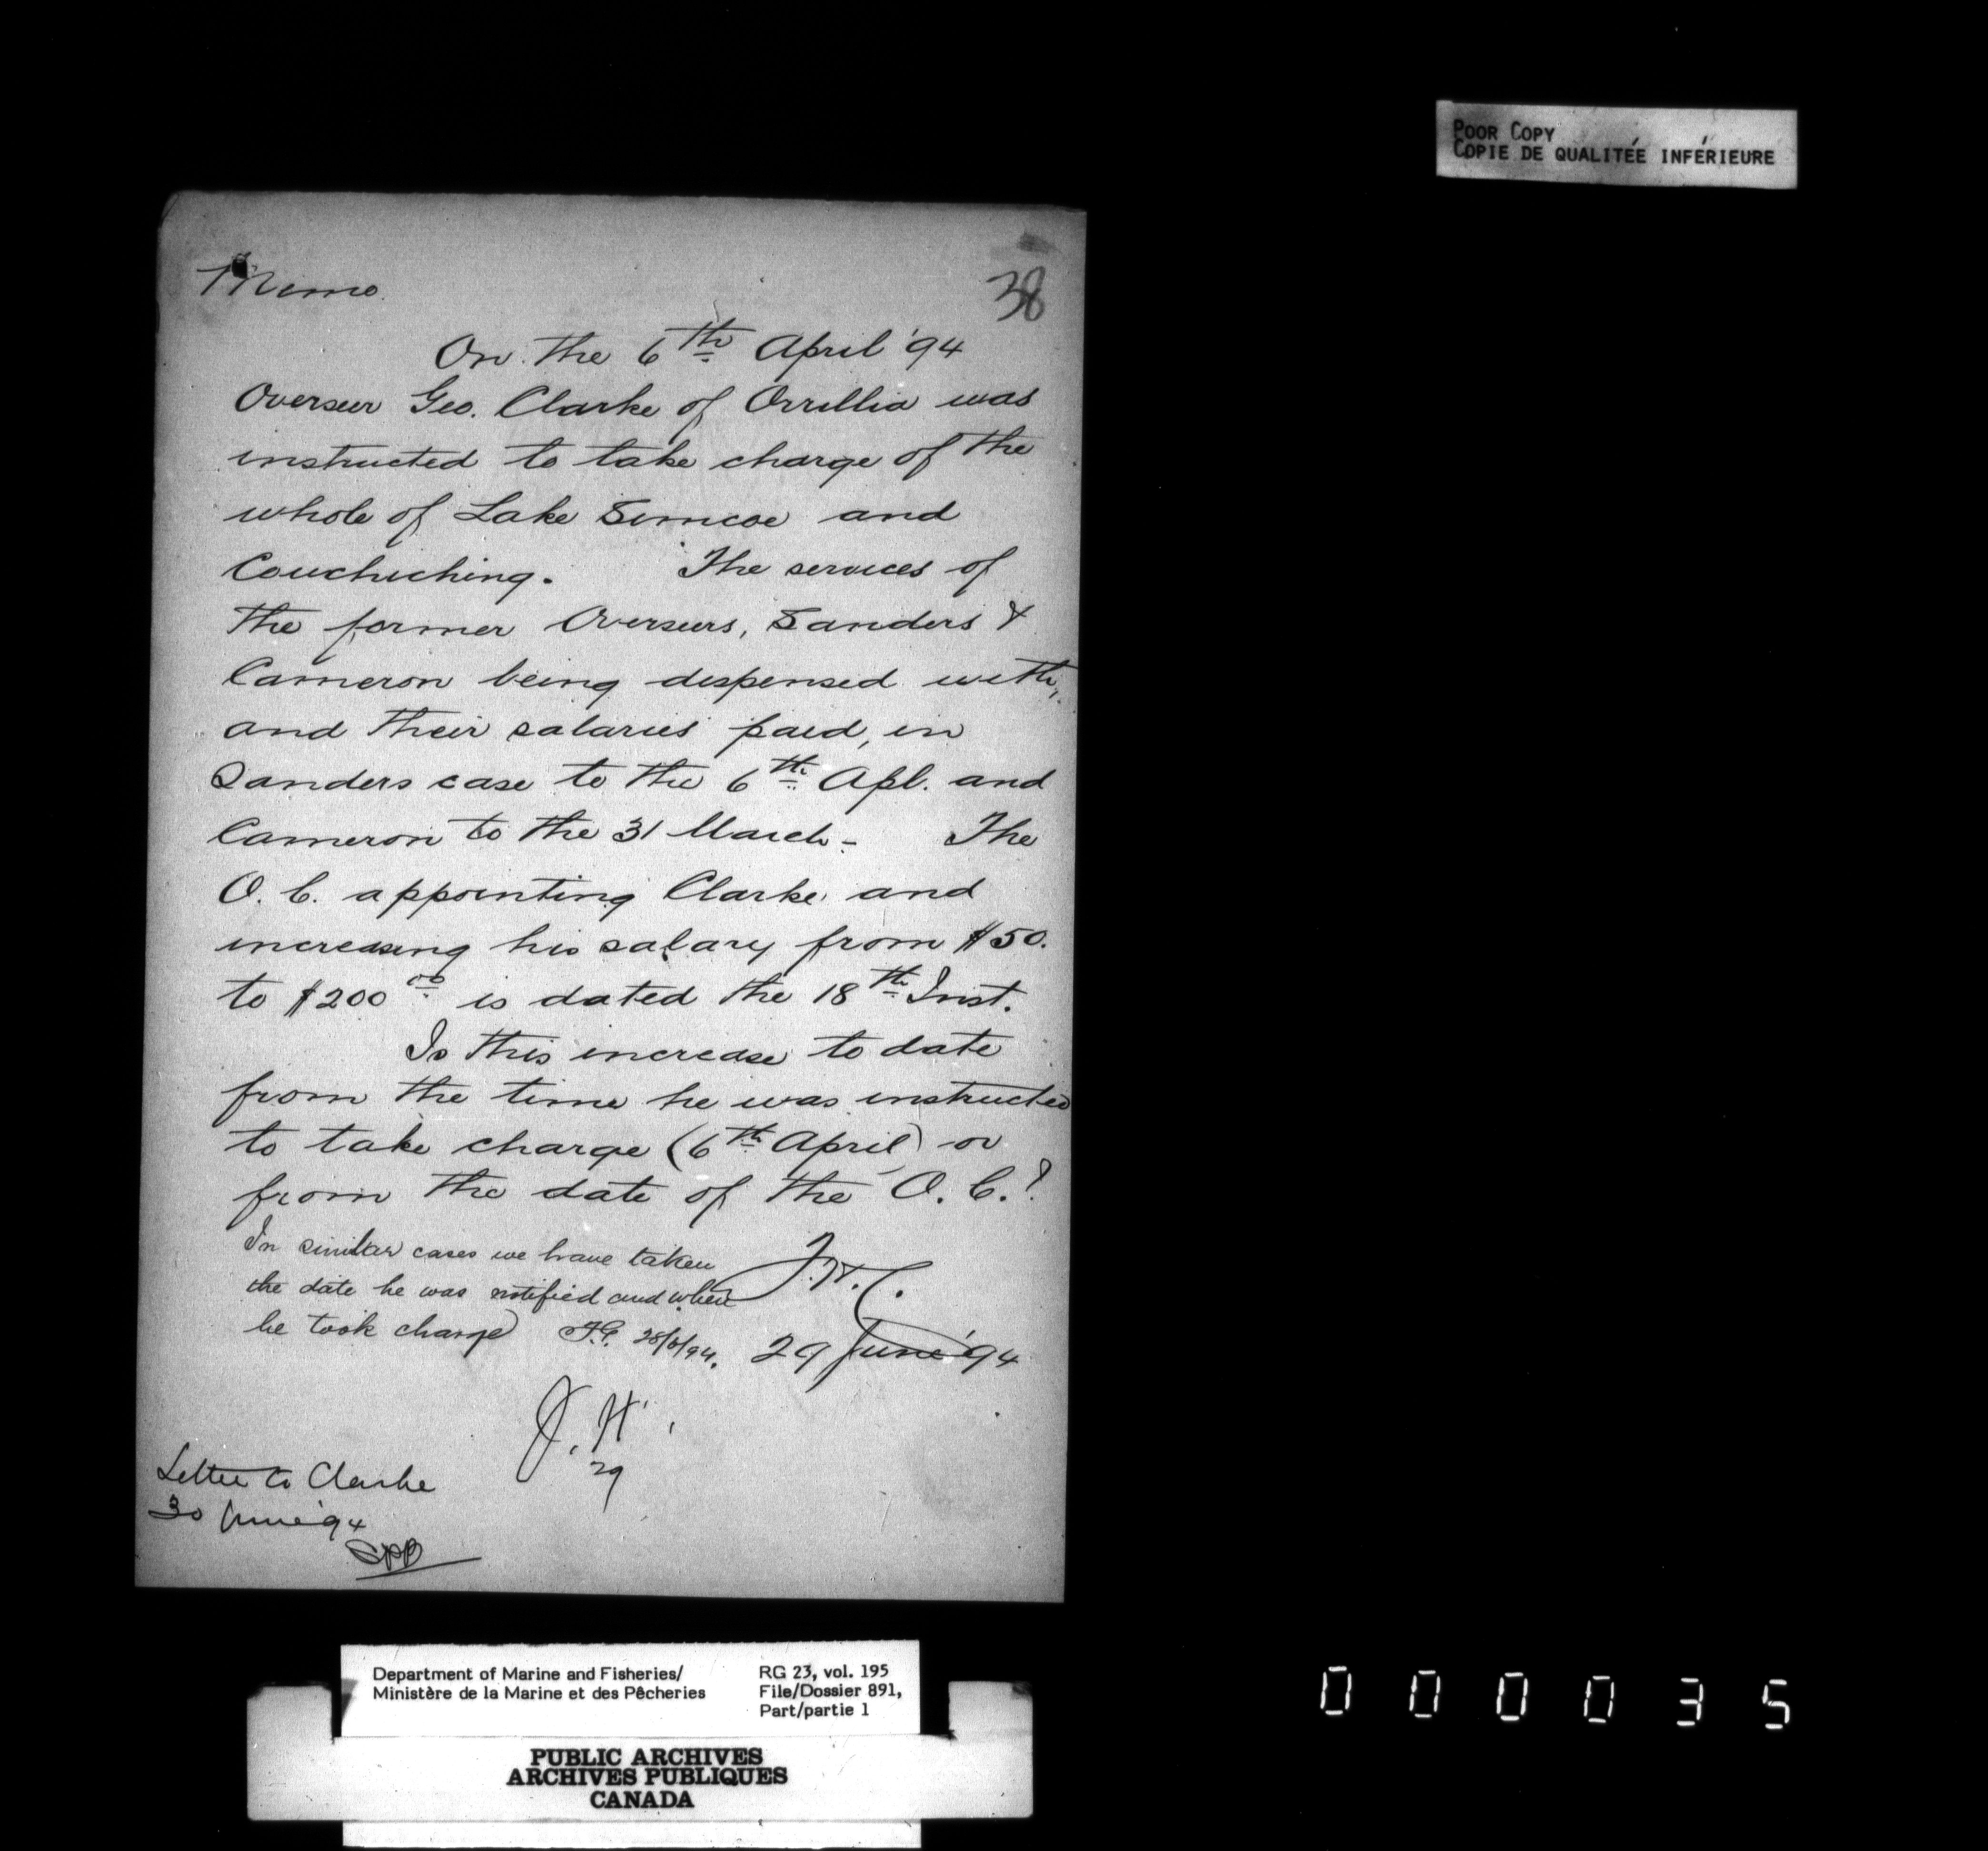 POOR COPY
COPIE DE QUALITÉE INFÉRIEURE
Memo.
38
On the 6th April '94
Overseer Geo. Clarke of Orrillia was
instructed to take charge of the
whole of Lake Simcoe and
Couchiching. The services of
the former Overseers, Sanders &
Cameron being dispensed with,
and their salaries paid, in
Sanders case to the 6th Apl. and
Cameron to the 31 March - The
O. C. appointing Clarke and
increasing his salary from $50.
to $200 00 is dated the 18th Inst.
Is this increase to date
from the time he was instructed
to take charge (6th April) or
from the date of the O. C.?
In similar cases we have taken
the date he was notified and when
he took charge
29 June '94
J. H.
29
Letter to Clarke
30 June '94
Department of Marine and Fisheries/
Ministère de la Marine et des Pêcheries
RG 23, vol. 195
File/Dossier 891,
Part/partie 1
PUBLIC ARCHIVES
ARCHIVES PUBLIQUES
CANADA
000035